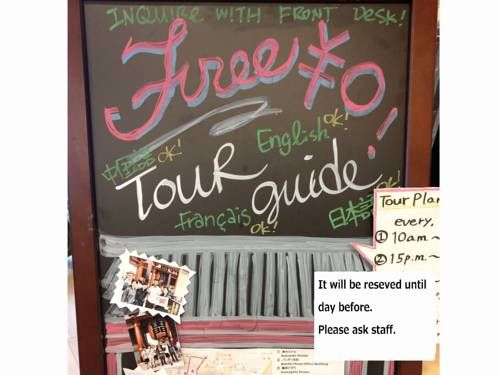 INQUIRE WITH FRONT DESK!
Free ¥0!
English OK!
中国語 OK!
Tour guide
Français OK!
日本語 OK!
Tour Plan
every,
① 10am~
② 15p.m.~
It will be reseved until
day before.
Please ask staff.